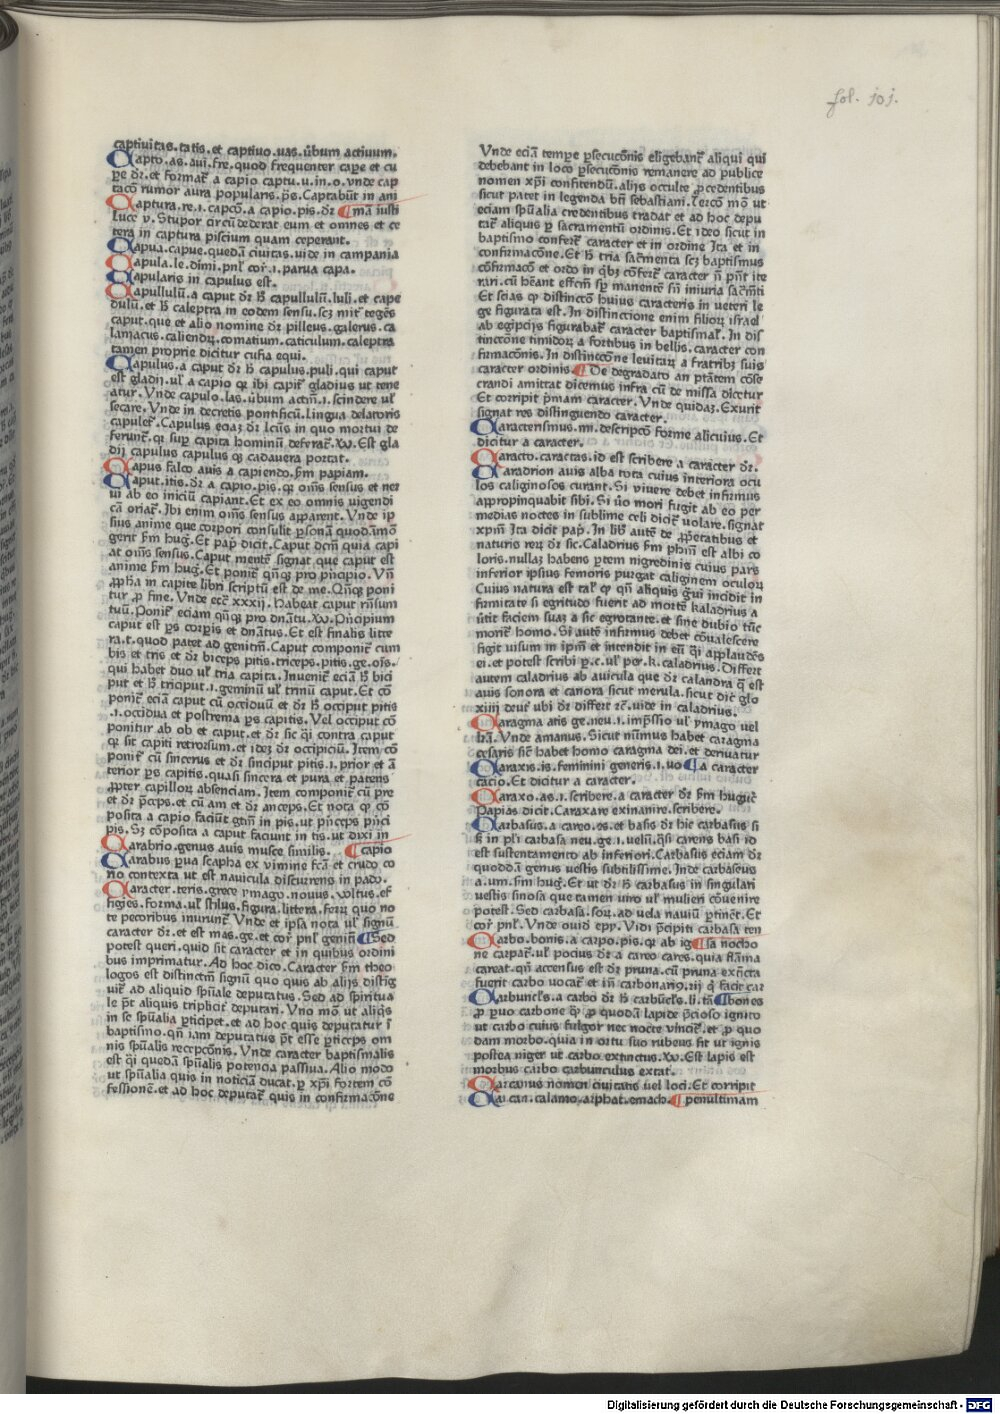 fol. 101.
captiuitas.tatis.et captiuo.uas.ũbum actiuum.
Capto.as.aui.fre.quod frequenter cape et cu
pe dr̃.et format̃ a capio captu.u.in.o.vnde cap
taco rumor aura popularis.ps. Captabũt in ani
Captura.re.i.capco.a capio.pis.dr̃ ¶ mã iusti
Luce v. Stupor circũdederat eum et omnes et ce
tera in captura piscium quam ceperant.
Capua.capue.quedã ciuitas.uide in campania
Capula.le.dimi.pnl̃ cor̃.i.parua capa.
Capularis in capulus est.
Capullulũ.a caput dr̃ h̃ capullulũ.luli.et cape
dulũ.et h̃ caleptra in eodem sensu.scz mit̃ teges
caput.que et alio nomine dr̃ pilleus.galerus.ca
lamacus.caliendꝝ.comatium.caticulum.caleptra
tamen proprie dicitur cufia equi.
Capulus.a caput dr̃ h̃ capulus.puli.qui caput
est gladij.ul̃ a capio qꝛ ibi capit̃ gladius ut tene
atur. Vnde capulo.las.ũbum actiũ.i.scindere ul̃
secare. Vnde in decretis pontificũ.lingua delatoris
capulet̃. Capulus eciaz dr̃ lcũs in quo mortui de
ferunt̃.qꝛ sup capita hominũ deferat̃.xv. Est gla
dij capulus capulus qꝫ cadauera portat.
Capus falco auis a capiendo.s̃m papiam.
Caput.itis.dr̃ a capio.pis.qꝛ om̃s sensus et ner
ui ab eo iniciũ capiant. Et ex eo omnis uigendi
cã oriat̃. Ibi enim om̃s sensus apparent. Vnde ip
sius anime que corpori consulit psonã quodãmo
gerit s̃m hug̃. Et pap̃ dicit. Caput dc̃m quia capi
at om̃s sensus. Caput mentẽ signat que caput est
anime s̃m hug̃. Et ponit̃ qñqꝫ pro pncipio. Vñ
ꝓpha in capite libri scriptũ est de me. Qñqꝫ poni
tur ꝓ fine. Vnde ecc̃ xxxij. Habeat caput rñsum
tuũ. Ponit̃ eciam qñqꝫ pro dnãtu.xv. Pncipium
caput est ps corpis et dnãtus. Et est finalis litte
ra.t.quod patet ad genitm̃. Caput componit̃ cum
bis et tris et dr̃ biceps pitis.triceps.pitis.ge.ois.
qui habet duo ul̃ tria capita. Inuenit̃ eciã h̃ bici
put et h̃ triciput.i.geminũ ul̃ trinũ caput. Et cõ
ponit̃ eciã caput cũ occiduũ et dr̃ h̃ occiput pitis
.i.occidua et postrema ps capitis. Vel occiput cõ
ponitur ab ob et caput.et dr̃ sic q̃i contra caput
qꝛ sit capiti retrorsum.et idez dr̃ occipiciũ. Item cõ
ponit̃ cũ sincerus et dr̃ sinciput pitis.i.prior et ã
terior ps capitis.quasi sincera et pura.et patens
ꝓpter capilloꝝ absenciam. Item componit̃ cũ pre
et dr̃ pceps.et cũ am et dr̃ anceps. Et nota qꝫ cõ
posita a capio faciũt gtm̃ in pis.ut pnceps pnci
pis. Sz cõposita a caput faciunt in tis.ut dixi in
Carabrio.genus auis musce similis. ¶ capio
Carabus pua scapha ex vimine fcã.et crudo co
rio contexta ut est nauicula discurrens in pado.
Caracter.teris.grece ymago.nouus.voltus.ef
figies.forma.ul̃ stilus.figura.littera.ferꝝ quo no
te pecoribus inurunt̃. Vnde et ipsa nota ul̃ signũ
caracter dr̃.et est mas.ge.et cor̃ pnl̃ genim̃ ¶ Sed
potest queri.quid sit caracter et in quibus ordini
bus imprimatur. Ad hoc dico. Caracter s̃m theo
logos est distinctm̃ signũ quo quis ab alijs distig̃
uit̃ ad aliquid spũale deputatus. Sed ad spiritua
le pt̃ aliquis triplicit̃ deputari. Vno mõ ut aliqis
in se spũalia pticipet.et ad hoc quis deputatur ĩ
baptismo.qñ iam deputatus pt̃ esse pticeps om
nis spũalis recepcõnis. Vnde caracter baptismalis
est q̃i quedã spũalis potencia passiua. Alio modo
ut spũalia quis in noticiã ducat.p xpi fortem cõ
fessionẽ.et ad hoc deputat̃ quis in confirmacõne
Vnde eciã tempe psecucõnis eligebant̃ aliqui qui
debebant in loco psecucõnis remanere ad publice
nomen xpi confitendũ.alijs occulte ꝓcedentibus
sicut patet in legenda bti sebastiani. Tercõ mõ ut
eciam spũalia credentibus tradat et ad hoc depu
tat̃ aliquis p sacramentũ ordinis. Et ideo sicut in
baptismo confert̃ caracter et in ordine Ita et in
confirmacõne. Et h̃ tria sacmenta scz baptismus
cõfirmacõ et ordo in qbz cõfert̃ caracter ñ pñt ite
rari.cũ hẽant effcm̃ sp manentẽ sñ iniuria sacm̃ti
Et scias qꝫ distinctõ huius caracteris in ueteri le
ge figurata est. In distinctione enim filioꝝ israel
ab egipcijs figurabat̃ caracter baptismal̃. In dis
tinccõne timidoꝝ a fortibus in bellis.caracter con
firmacõnis. In distinccõne leuitaꝝ a fratribꝫ suis
caracter ordinis. ¶ De degradato an ptãtem cõse
crandi amittat dicemus infra cũ de missa dicetur
Et corripit pmam caracter. Vnde quidaz. Exurit
signat res distinguendo caracter.
Caracterismus.mi.descripcõ forme alicuius. Et
dicitur a caracter.
Caracto.caractas.id est scribere a caracter dr̃.
Caradrion auis alba tota cuius interiora ocu
los caliginosos curant. Si uiuere debet infirmus
appropinquabit sibi. Si ũo mori fugit ab eo per
medias noctes in sublime celi dicit̃ uolare.signat
xpm̃ Ita dicit pap̃. In lib̃ autẽ de ꝓprietatibus et
naturis rerꝝ dr̃ sic. Caladrius s̃m phm̃ est albi co
loris.nullaz habens ptem nigredinis cuius pars
inferior ipsius femoris purgat caliginem oculoꝝ
Cuius natura est tal̃ qꝫ qñ aliquis gui incidit in
firmitate si egritudo fuerit ad mortẽ kaladrius a
uertit faciem suaz a sic egrotante.et sine dubio tũc
morit̃ homo. Si autẽ infirmus debet cõualescere
figit uisum in ipm̃ et intendit in eũ q̃i applaudẽs
ei.et potest scribi p.c.ul̃ per.k.caladrius. Differt
autem caladrius ab auicula que dr̃ calandra q̃ est
auis sonora et canora sicut merula.sicut dic̃ glo
xiiij deut̃ ubi dr̃ differt rc̃.uide in caladrius.
Caragma atis ge.neu.i.impssio ul̃ ymago uel
hã. Vnde amanus. Sicut nũmus habet caragma
cesaris sic̃ habet homo caragma dei.et deriuatur
Caraxis.is.feminini generis.i.uo ¶ a caracter
cacio. Et dicitur a caracter.
Caraxo.as.i.scribere.a caracter dr̃ s̃m huguc̃
Papias dicit. Caraxare exinanire.scribere.
Carbasus.a careo.es.et basis dr̃ hic carbasus si
s̃ in pl̃i carbasa neu.ge.i.uelũ.q̃si carens basi id
est sustentamento ab inferiori. Carbasus eciam dr̃
quoddã genus uestis subtilissime. Inde carbaseus
a.um.s̃m hug̃. Et ut dr̃ h̃ carbasus in singulari
uestis sinosa que tamen uiro ul̃ mulieri cõuenire
potest. Sed carbasa.soꝝ.ad uela nauiũ ptinet̃. Et
cor̃ pnl̃. Vnde ouid epy. Vidi pcipiti carbasa ten
Carbo.bonis.a carpo.pis.qꝛ ab ig ¶ sa notho
ne carpat̃.ul̃ pocius dr̃ a careo cares.quia flãma
careat.qñ accensus est dr̃ pruna.cũ pruna extĩcta
fuerit carbo uocat̃ et in carbonari9.rij q̃ facit car
Carbuncl̃s.a carbo dr̃ h̃ carbũcl̃s.li.tã ¶ bones
ꝓ puo carbone qꝫ ꝓ quodã lapide pcioso ignito
ut carbo cuius fulgor nec nocte vincit̃.et ꝓ quo
dam morbo.quia in ortu suo rubeus fit ut ignis
postea niger ut carbo extinctus.xv. Est lapis est
morbus carbo carbunculus extat.
Carcanus nomen ciuitatis uel loci. Et corripit
Cai can.calamo.arphat.emach. ¶ penultimam
Digitalisierung gefördert durch die Deutsche Forschungsgemeinschaft - DFG